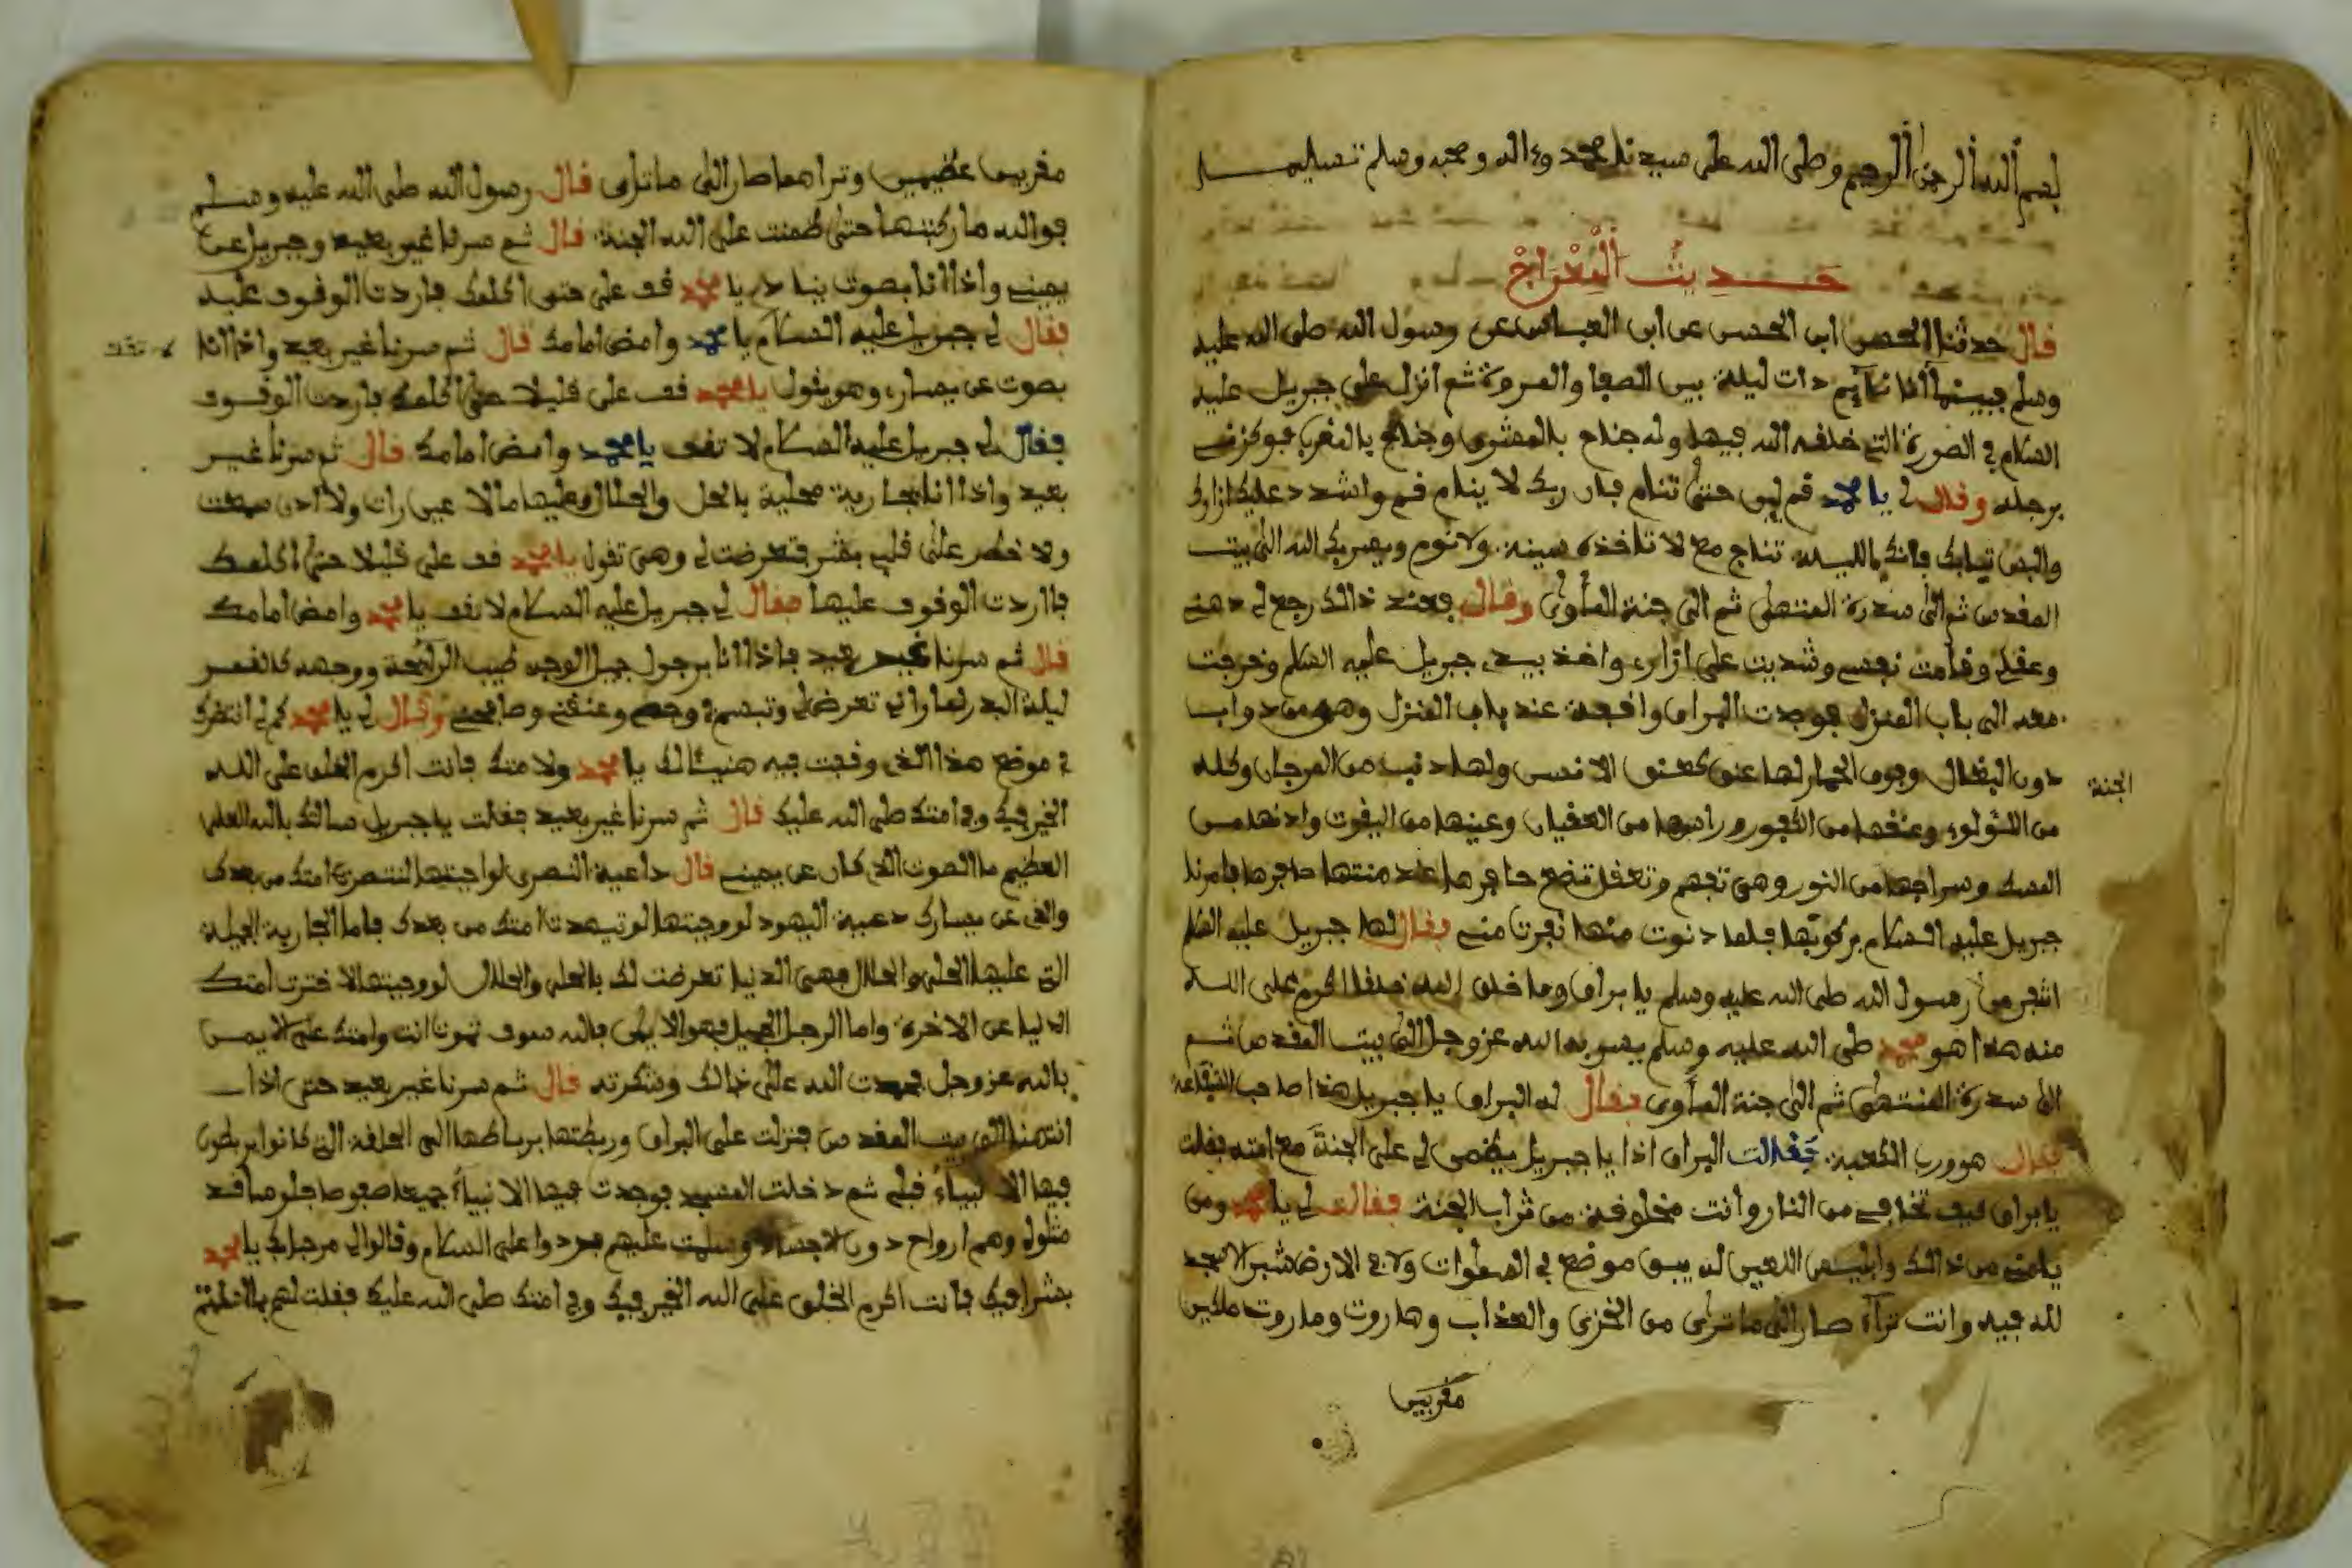 بسم الله الرحمن الرحيم وصلى الله على سيدنا محمد وءاله وصحبه وسلم تسليما
حديث المعراج
قال حدثنا الحسن ابن الحسن عن ابن العباس عن رسول الله صلى الله عليه
وسلم فبينما أنا نآيم ذات ليلة بين الصفا والمروة ثم انزل علي جبريل عليه
السلام في الصورة التي خلقه الله فيها وله جناح بالمشرق وجناح بالمغرب فوكزني
برجله وقال لي يا محمد قم ليس حتى تنام فان ربك لا ينام قم واشدد عليك ازارك
والبس ثيابك فانك الليلة تناج مع لا تاخذه سينة ولا نوم ويسربك الله الى بيت
المقدس ثم الى سدرة المنتهى ثم الى جنة المأوى وقال فعند ذالك رجع لي ذهني
وعقلي وقامت نفسي وشديت علي ازاري واخذ بيدي جبريل عليه السلم وخرجت
معه الى باب المنزل فوجدت البراق واقفة عند باب المنزل وهي من دواب
الجنة
دون البغال وفوق الحمار لها عنق كعنق الانسن ولها ذنب من المرجان وكله
من اللؤلؤ وعنقها من الكفور وراسها من العقيان وعينها من اليقوت واذنها من
المسك وسراجها من النور وهي تفهم وتعقل تضع حافرها عند منتها حافرها فامرنا
جبريل عليه السلام بركوبها فلما دنوت منها نفرت مني فقال لها جبريل عليه السلم
اتنفر من رسول الله صلى الله عليه وسلم يا براق وما خلق الله خلقا اكرم على الله
منه هذا هو محمد صلى الله عليه وسلم يسير به الله عز وجل الى بيت المقدس ثم
الى سدرة المنتهى ثم الى جنة المأوى فقال له البراق يا جبريل هذا صاحب الشفاعة
فقال هو ورب الكعبة فقالت البراق اذا يا جبريل يضمن لي على الجنة مع امته فقلت
يا براق كيف تخافي من النار وانت مخلوفة من تراب الجنة فقالت لي يا محمد ومن
يامني من ذالك وابليس اللعين لم يبق موضع في السموات ولا في الارض شبر الا سجد
لله فيه وانت تراه صار الى ما ترى من الخزي والعذاب وهاروت وماروت ملكين
مقربين
مقربين عظيمين وتراهما صار الى ما ترى قال رسول الله صلى الله عليه وسلم
فوالله ما ركبتها حتى ضمنت على الله الجنة قال ثم سرنا غير بعيد وجبريل عن
يميني واذا انا بصوت ينادي يا محمد قف علي حتى اكلمك فاردت الوقوف عليه
فقال لي جبريل عليه السلام يا محمد وامض امامك قال ثم سرنا غير بعيد واذا انا
لا تقف
بصوت عن يساري وهو يقول يا محمد قف علي قليلا حتى اكلمك فاردت الوقوف
فقال لي جبريل عليه السلام لا تقف يا محمد وامض امامك قال ثم سرنا غير
بعيد واذا انا بجارية محلية بالحلى والحلال وعليها ما لا عين رات ولا اذن سمعت
ولا خطر على قلب بشر فتعرضت لي وهي تقول يا محمد قف علي قليلا حتى اكلمك
فاردت الوقوف عليها فقال لي جبريل عليه السلام لا تقف يا محمد وامض امامك
قال ثم سرنا غير بعيد فاذا انا برجول جميل الوجه طيب الرآيحة ووجهه كالقمر
ليلة البدر لما راني تعرض لي وتبسم في وجهي وعنقني وصافحني وقال لي يا محمد كم لي انتظرك
في موضع هذا الذي وقفت فيه هنيئا لك يا محمد ولامتك فانت اكرم الخلق على الله
الخير فيك وفي امتك صلى الله عليك قال ثم سرنا غير بعيد فقلت يا جبريل سالتك بالله العلي
العظيم ما الصوت الذي كان عن يميني قال داعية النصرى لو اجبتها لتنصرت امتك من بعدك
والتي عن يسارك دعية اليهود لو وجبتها لو تيهدت امتك من بعدك فاما الجارية الجميلة
التي عليها الحلي والحلال فهي الدنيا تعرضت لك بالحلى والحلال لو وجبتها لاخترت امتك
الدنيا عن الاخرة واما الرجل الجميل فهو الايمن فالله سوف تموت انت وامتك على الايمن
بالله عز وجل فحمدت الله على ذالك وشكرته قال ثم سرنا غير بعيد حتى اذا
انتهينا الى بيت المقدس فنزلت على البراق وربطتها برباطها الى الحلقة التي كانوا يربطون
فيها الانبياء قبلي ثم دخلت المسجد فوجدت فيها الانبياء جميعا صفوفا جلوسا قد
مثلوا لي وهم ارواح دون الاجساد وسلمت عليهم فردوا علي السلام وقالوا لي مرحبا بك يا محمد
بشرا فيك فانت اكرم الخلق على الله الخير فيك وفي امتك صلى الله عليك فقلت لهم